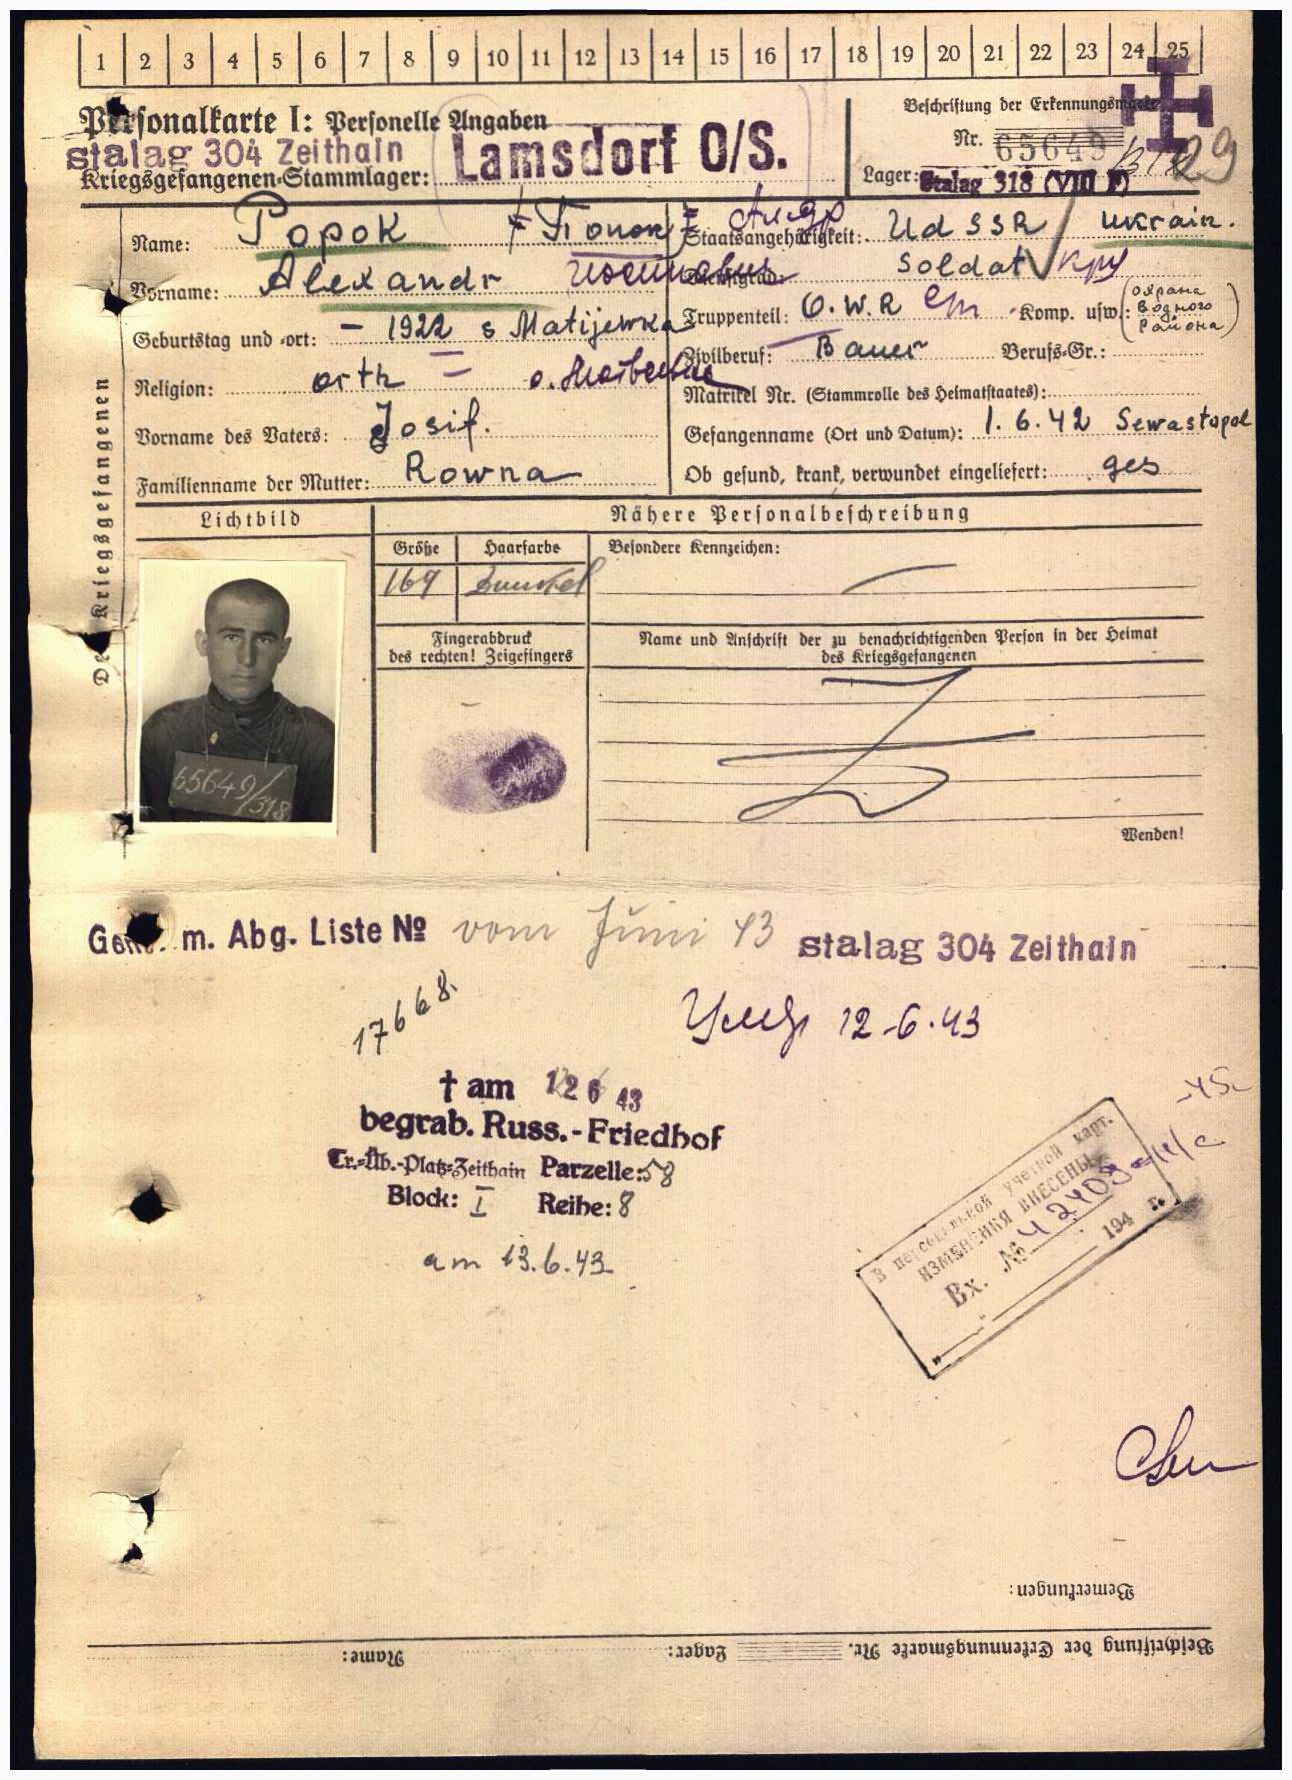 1 2 3 4 5 6 7 8 9 10 11 12 13 14 15 16 17 18 19 20 21 22 23 24 25
Personalkarte I: Personelle Angaben
stalag 304 Zeithain
Kriegsgefangenen-Stammlager:
Lamsdorf O/S.
Beschriftung der Erkennungsmarke
Nr. 65649
Lager: Stalag 318 (VIII F)
29
Des Kriegsgefangenen
Name: Popok Попок Алдр
Vorname: Alexandr Иосипович
Geburtstag und -ort: - 1922 s Matijewka
Religion: orth
Vorname des Vaters: Josif.
Familienname der Mutter: Rowna
Staatsangehörigkeit: UdSSR ukrain.
Dienstgrad: Soldat кр
Truppenteil: O.W.R Komp. usw.: (охрана водного района)
Zivilberuf: Bauer Berufs-Gr.:
Matrikel Nr. (Stammrolle des Heimatstaates):
Gefangenname (Ort und Datum): 1.6.42 Sewastopol
Ob gesund, krank, verwundet eingeliefert: ges
Lichtbild
Nähere Personalbeschreibung
Größe Haarfarbe Besondere Kennzeichen:
169 Dunkel
Fingerabdruck
des rechten! Zeigefingers
Name und Anschrift der zu benachrichtigenden Person in der Heimat
des Kriegsgefangenen
65649/318
Wenden!
m. Abg. Liste № vom Juni 43
stalag 304 Zeithain
17668.
Умер 12-6.43
† am 12 6 43
begrab. Russ.-Friedhof
Tr.-Üb.-Platz-Zeithain Parzelle: 58
Block: I Reihe: 8
am 13.6.43
В персональной учетной карт.
ИЗМЕНЕНИЯ ВНЕСЕНЫ
Вх. № 42409
194 г.
Bemerkungen:
Beschriftung der Erkennungsmarke Nr. Lager: Name: